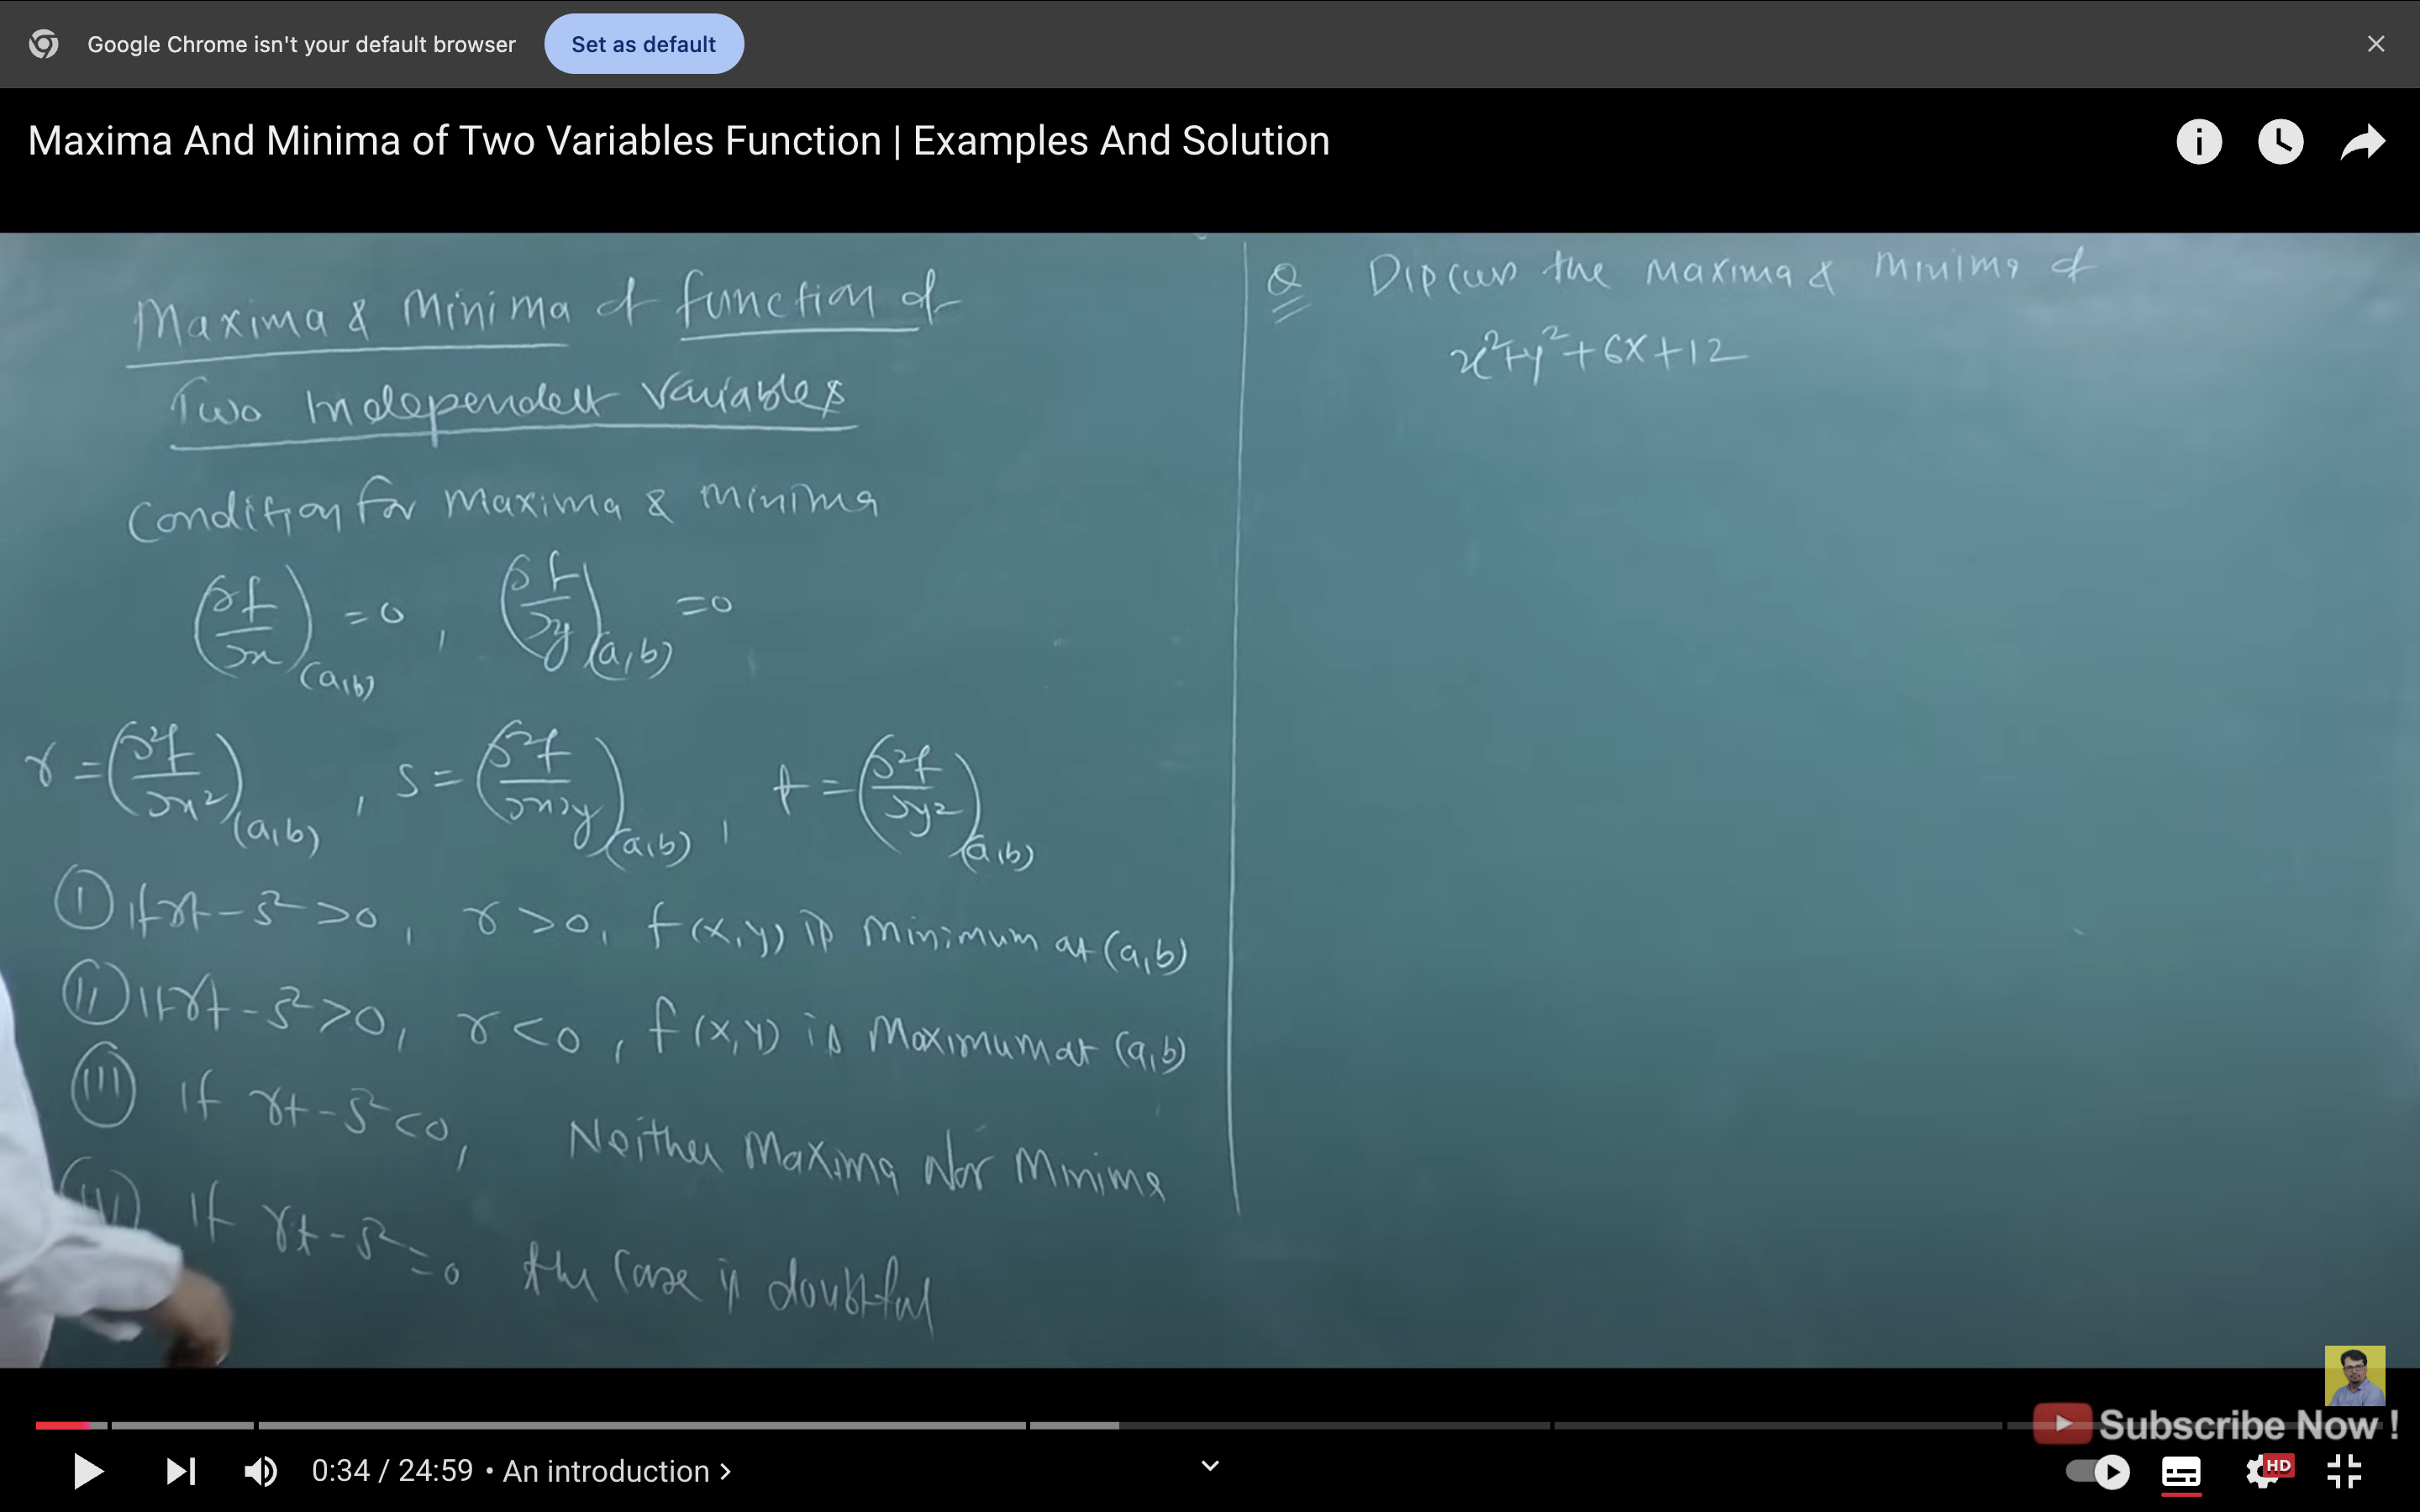 Google Chrome isn't your default browser Set as default
Maxima And Minima of Two Variables Function | Examples And Solution
Maxima & Minima of function of
Two Independent Variables
Condition for Maxima & Minima
(∂f/∂x)(a,b) = 0, (∂f/∂y)(a,b) = 0
r = (∂²f/∂x²)(a,b), s = (∂²f/∂x∂y)(a,b), t = (∂²f/∂y²)(a,b)
(I) If rt - s² > 0, r > 0, f(x,y) is Minimum at (a,b)
(II) If rt - s² > 0, r < 0, f(x,y) is Maximum at (a,b)
(III) If rt - s² < 0, Neither Maxima Nor Minima
(IV) If rt - s² = 0 the Case is doubtful
Q Discuss the Maxima & Minima of
x² + y² + 6x + 12
Subscribe Now !
0:34 / 24:59 • An introduction >
HD